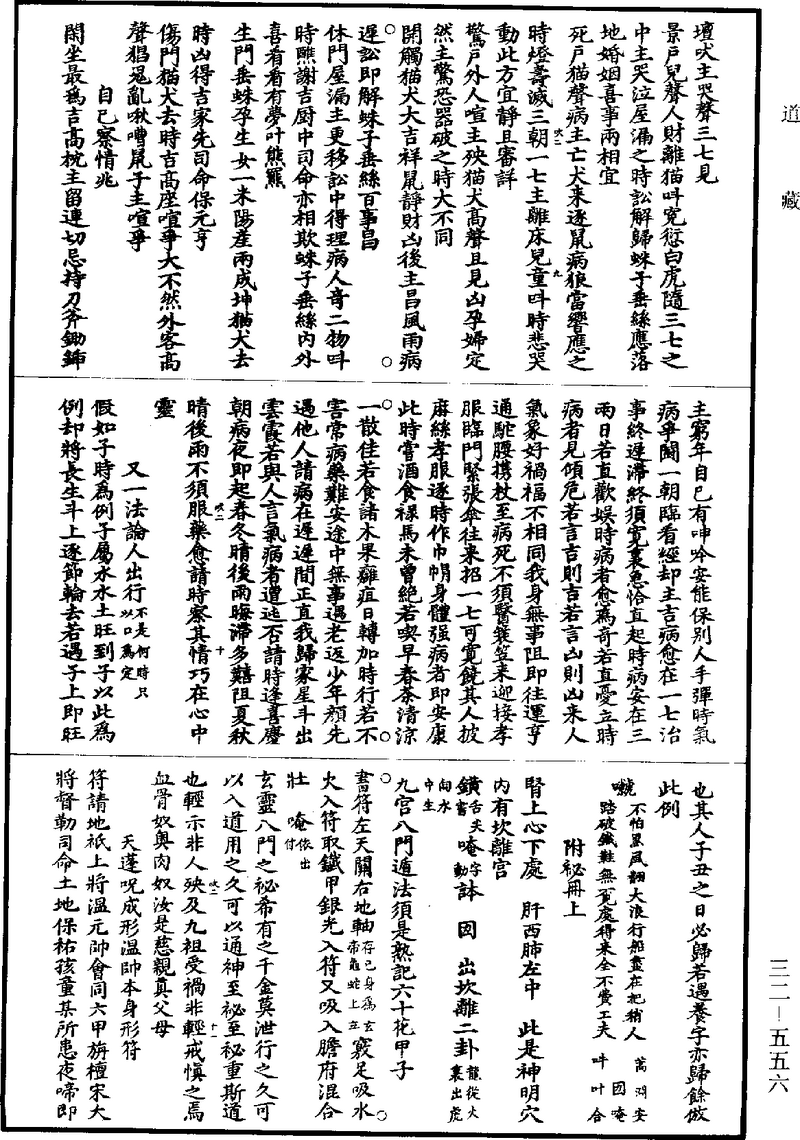 道藏
三二—五五六
壇吠主哭聲三七見
景戶兒聲人財離猫呌寃愆白虎隨三七之
中主哭泣屋漏之時訟解歸蛛子垂絲應落
地婚姻喜事兩相宜
死戶猫聲病主亡犬來逐鼠病狼當響應之
時燈壽滅三朝一七主離床兒童呌時悲哭
動此方宜靜且審詳
驚戶外人喧主殃猫犬高聲且見凶孕婦定
然主驚恐器破之時大不同
開觸猫犬大吉祥鼠靜財凶後主昌風雨病
遲訟即解蛛子垂絲百事昌
休門屋漏主更移訟中得理病人奇二物呌
時醮謝吉厨中司命亦相欺蛛子垂絲內外
喜看看有夢叶熊羆
生門垂蛛孕生女一米陽産兩成坤猫犬去
時凶得吉家先司命保元亨
傷門猫犬去時吉高座喧爭大不然外客高
聲猖冤亂啾嘈鼠子主喧爭
自己察情兆
閑坐最爲吉高枕主留連切忌持刀斧鋤鋛
主窮年自己有呻吟安能保别人手彈時氣
病爭鬪一朝臨看經却主吉病愈在一七治
事終遲滯終須寬裏急恰直起時病安在三
兩日若直歡娛時病者愈爲奇若直憂立時
病者見傾危若言吉則吉若言凶則凶來人
氣象好禍福不相同我身無事阻即往運亨
通駝腰携杖至病死不須醫簑笠來迎接孝
服臨門緊張傘往來招一七可寬饒其人披
麻絲孝服逐時作巾帽身體强病者即安康
此時嘗酒食祿馬未曾絕若喫早春茶清涼
一散佳若食諸木果癰疽日轉加時行若不
害常病藥難安途中無事遇老返少年顏先
遇他人請病在遲遲間正直我歸家星斗出
雲霞若與人言氣病者遭迍否請時逢喜慶
朝病夜即起春冬晴後雨晦滯多囏阻夏秋
晴後雨不須服藥愈請時察其情巧在心中
靈
又一法論人出行不是何時只以口爲定
假如子時爲例子屬水水土旺到子以此爲
例却將長生斗上逐節輪去若遇子上即旺
也其人子丑之日必歸若遇養字亦歸餘倣
此例
不怕黑風翻大浪行船盡在把稍人
踏破鐵鞋無覓處得來全不費工夫
附秘冊上
腎上心下處　肝西肺左中　此是神明穴
內有坎離宫
出坎離二卦龍從火裏出虎向水中生
九宫八門遁法須是熟記六十花甲子
書符左天關右地軸存己身爲玄帝龜蛇上立竅足吸水
火入符取鐵甲銀光入符又吸入膽府混合
壯
玄靈八門之祕希有之千金莫泄行之久可
以入道用之久可以通神至祕至祕重斯道
也輕示非人殃及九祖受禍非輕戒慎之焉
血骨奴與肉奴汝是慈親真父母
天蓬呪成形溫帥本身形符
符請地祇上將溫元帥會同六甲旃檀宋大
將督勒司命土地保祐孩童某所患夜啼即